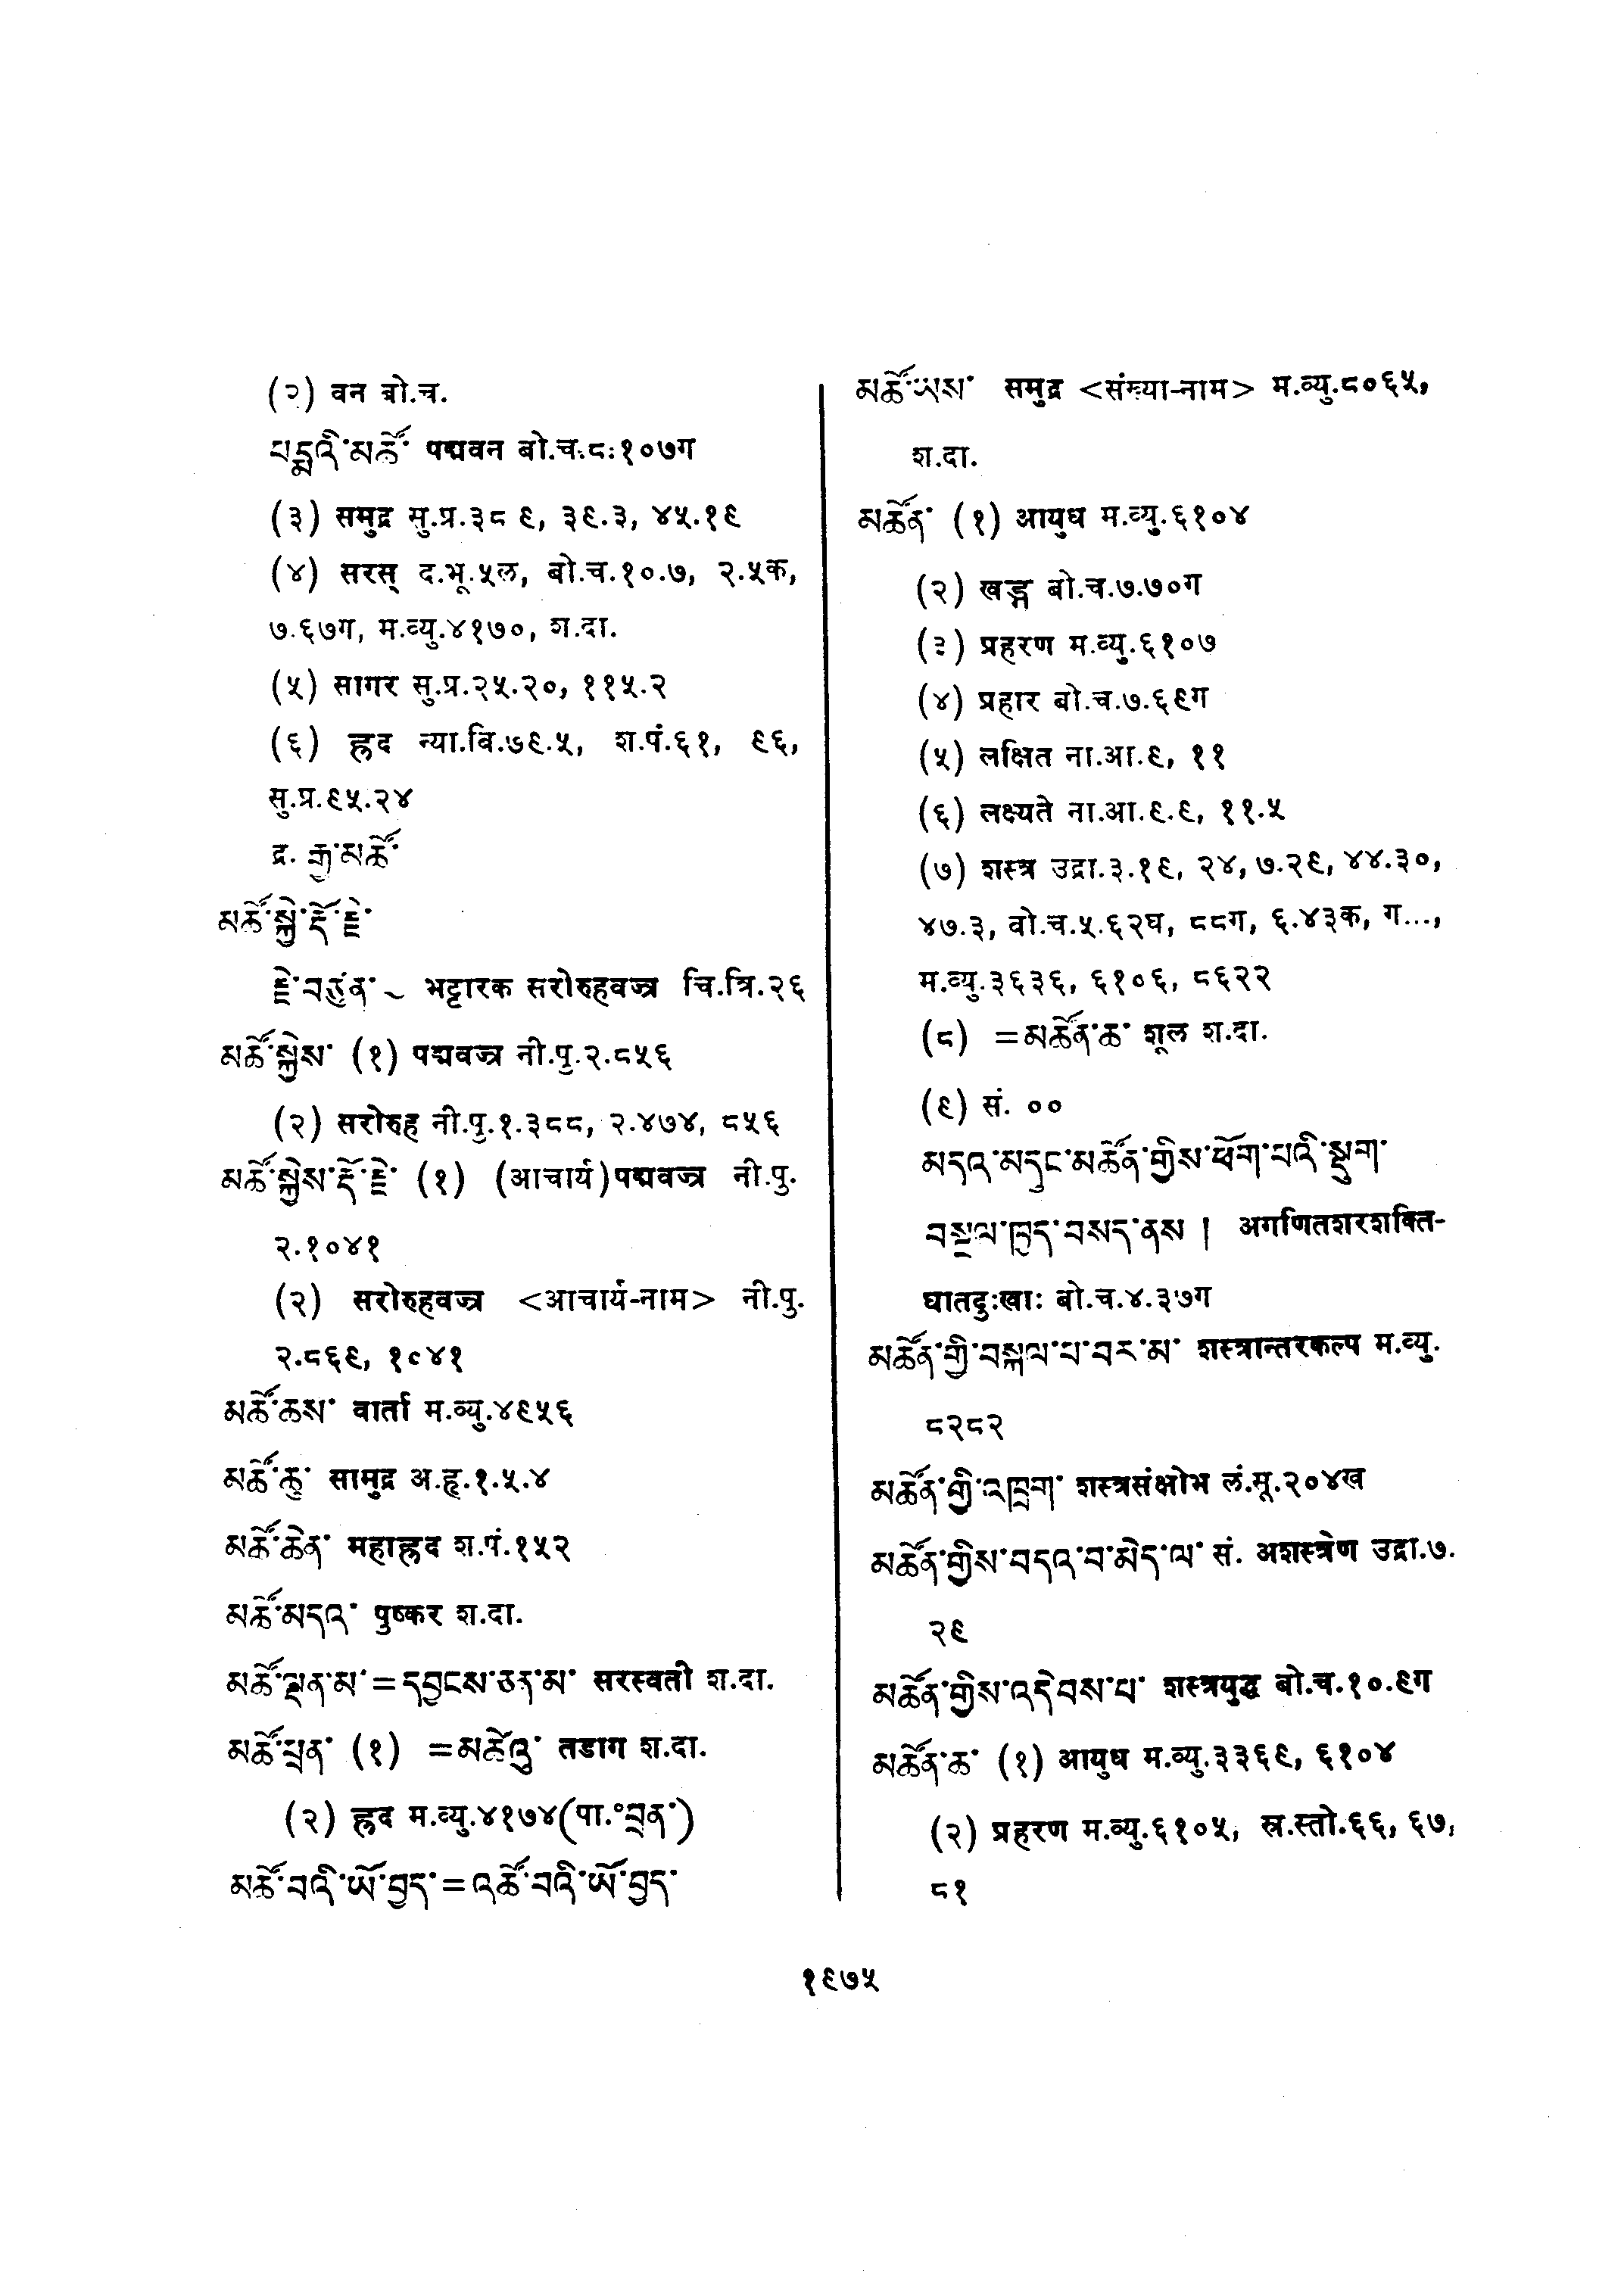 (२) वन बो.च.
པདྨའི་མཚོ་ पद्मवन बो.च.८.१०७ग
(३) समुद्र सु.प्र.३८ ९, ३९.३, ४५.१९
(४) सरस् द.भू.५ल, बो.च.१०.७, २.५क,
७.६७ग, म.व्यु.४१७०, श.दा.
(५) सागर सु.प्र.२५.२०, ११५.२
(६) ह्रद न्या.वि.७९.५, श.पं.६१, ९६,
सु.प्र.९५.२४
द्र. རྒྱ་མཚོ་
མཚོ་སྐྱེ་རྡོ་རྗེ་
རྗེ་བཙུན་ ~ भट्टारक सरोरुहवज्र चि.त्रि.२६
མཚོ་སྐྱེས་ (१) पद्मवज्र नी.पु.२.८५६
(२) सरोरुह नी.पु.१.३८८, २.४७४, ८५६
མཚོ་སྐྱེས་རྡོ་རྗེ་ (१) (आचार्य)पद्मवज्र नी.पु.
२.१०४१
(२) सरोरुहवज्र <आचार्य-नाम> नी.पु.
२.८६९, १०४१
མཚོ་ཆས་ वार्ता म.व्यु.४९५६
མཚོ་ཆུ་ सामुद्र अ.हृ.१.५.४
མཚོ་ཆེན་ महाह्रद श.पं.१५२
མཚོ་མདའ་ पुष्कर श.दा.
མཚོ་ལྡན་མ་=དབྱངས་ཅན་མ་ सरस्वती श.दा.
མཚོ་ཕྲན་ (१) =མཚེའུ་ तडाग श.दा.
(२) ह्रद म.व्यु.४१७४(पा.°བྲན་)
མཚོ་བའི་ཡོ་བྱད་=འཚོ་བའི་ཡོ་བྱད་
མཚོ་ཡས་ समुद्र <संख्या-नाम> म.व्यु.८०६५,
श.दा.
མཚོན་ (१) आयुध म.व्यु.६१०४
(२) खड्ग बो.च.७.७०ग
(३) प्रहरण म.व्यु.६१०७
(४) प्रहार बो.च.७.६९ग
(५) लक्षित ना.आ.९, ११
(६) लक्ष्यते ना.आ.९.९, ११.५
(७) शस्त्र उद्रा.३.१९, २४, ७.२९, ४४.३०,
४७.३, वो.च.५.६२घ, ८८ग, ६.४३क, ग...,
म.व्यु.३६३६, ६१०६, ८६२२
(८) =མཚོན་ཆ་ शूल श.दा.
(९) सं. ००
མདའ་མདུང་མཚོན་གྱིས་ཕོག་པའི་སྡུག་
བསྔལ་ཁྱད་བསད་ནས། अगणितशरशक्ति-
घातदुःखाः बो.च.४.३७ग
མཚོན་གྱི་བསྐལ་པ་བར་མ་ शस्त्रान्तरकल्प म.व्यु.
८२८२
མཚོན་གྱི་འཁྲུག་ शस्त्रसंक्षोभ लं.मू.२०४ख
མཚོན་གྱིས་བདའ་བ་མེད་ལ་ सं. अशस्त्रेण उद्रा.७.
२९
མཚོན་གྱིས་འདེབས་པ་ शस्त्रयुद्ध बो.च.१०.९ग
མཚོན་ཆ་ (१) आयुध म.व्यु.३३६९, ६१०४
(२) प्रहरण म.व्यु.६१०५, स्र.स्तो.६६, ६७,
८१
१९७५